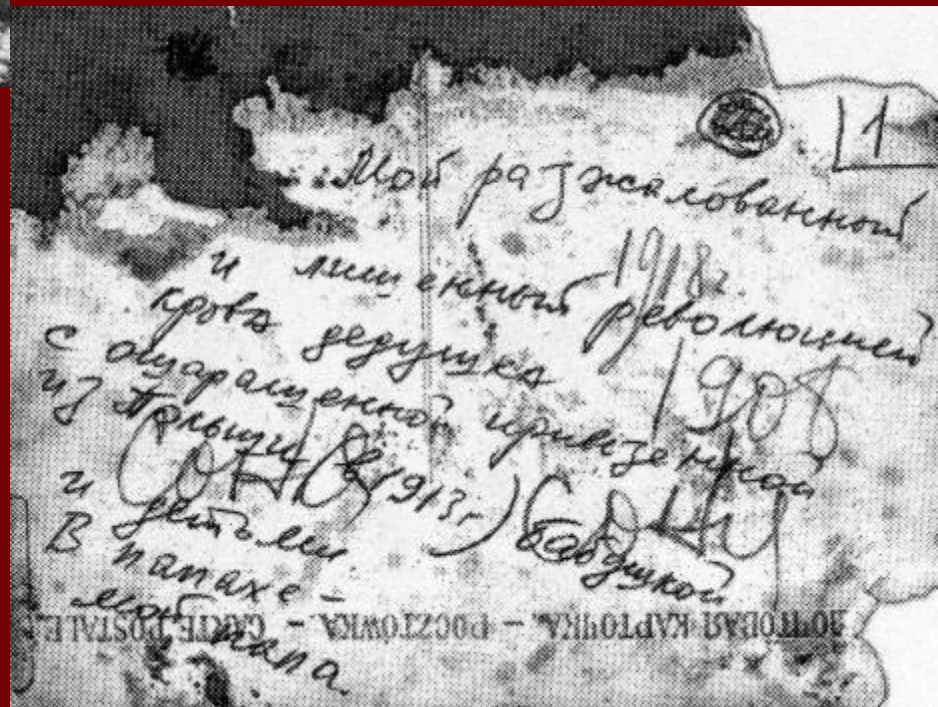 1
Мой разжалованный
1918г.
и лишенный революцией
крова дедушка
1908
с ошарашенной привезенной
из Польши в 1913г)
бабушкой
и детьми.
В папахе -
мой папа.
ПОЧТОВАЯ КАРТОЧКА. - POCZTÓWKA - CARTE POSTALE.